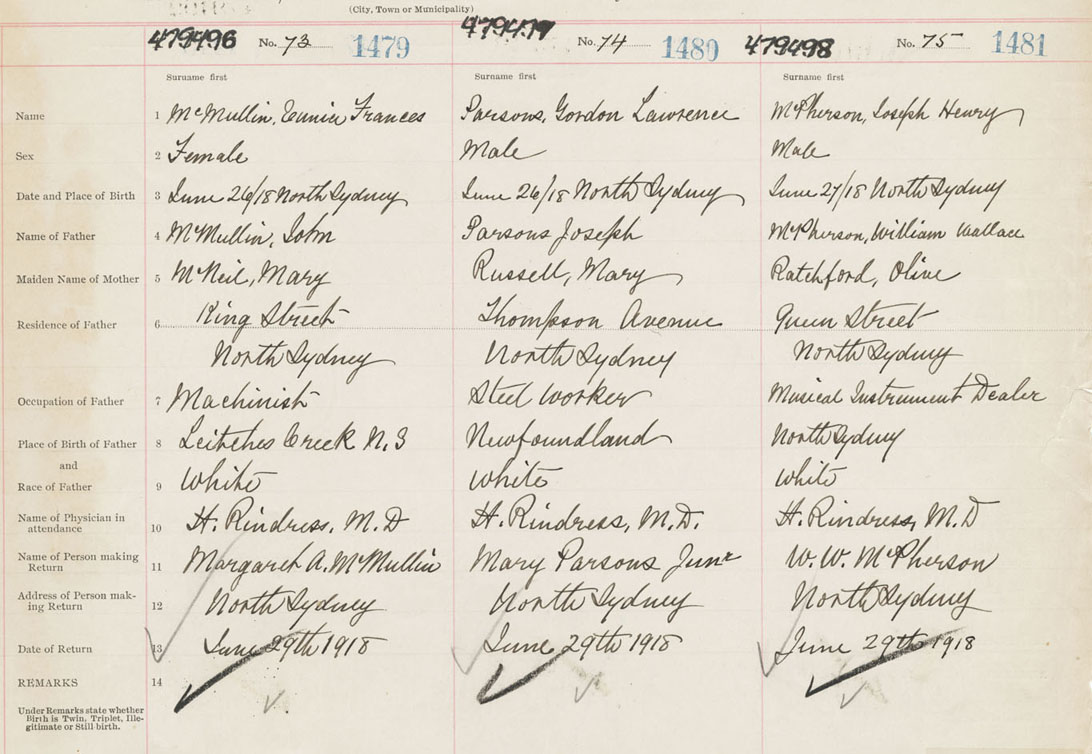 (City, Town or Municipality)
479496 No. 73 1479 No. 74 1480 479498 No. 75 1481
Surname first Surname first Surname first
Name 1 McMullin, Eunice Frances Parsons, Gordon Lawrence McPherson, Joseph Henry
Sex 2 Female Male Male
Date and Place of Birth 3 June 26/18 North Sydney June 26/18 North Sydney June 27/18 North Sydney
Name of Father 4 McMullin, John Parsons Joseph McPherson, William Wallace
Maiden Name of Mother 5 McNeil, Mary Russell, Mary Ratchford, Olive
Residence of Father 6 King Street Thompson Avenue Queen Street
North Sydney North Sydney North Sydney
Occupation of Father 7 Machinist Steel Worker Musical Instrument Dealer
Place of Birth of Father 8 Leitches Creek N.S Newfoundland North Sydney
and
Race of Father 9 White White White
Name of Physician in
attendance 10 H. Rindress, M.D H. Rindress, M.D. H. Rindress, M.D
Name of Person making
Return 11 Margaret A. McMullin Mary Parsons Junr W. W. McPherson
Address of Person mak-
ing Return 12 North Sydney North Sydney North Sydney
Date of Return 13 June 29th 1918 June 29th 1918 June 29th 1918
REMARKS 14
Under Remarks state whether
Birth is Twin, Triplet, Ille-
gitimate or Still-birth.